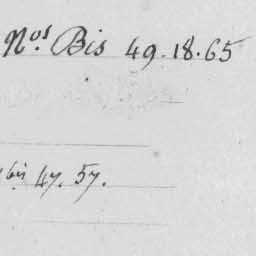 Nos. Bis 49.18.65
bis 47.57.